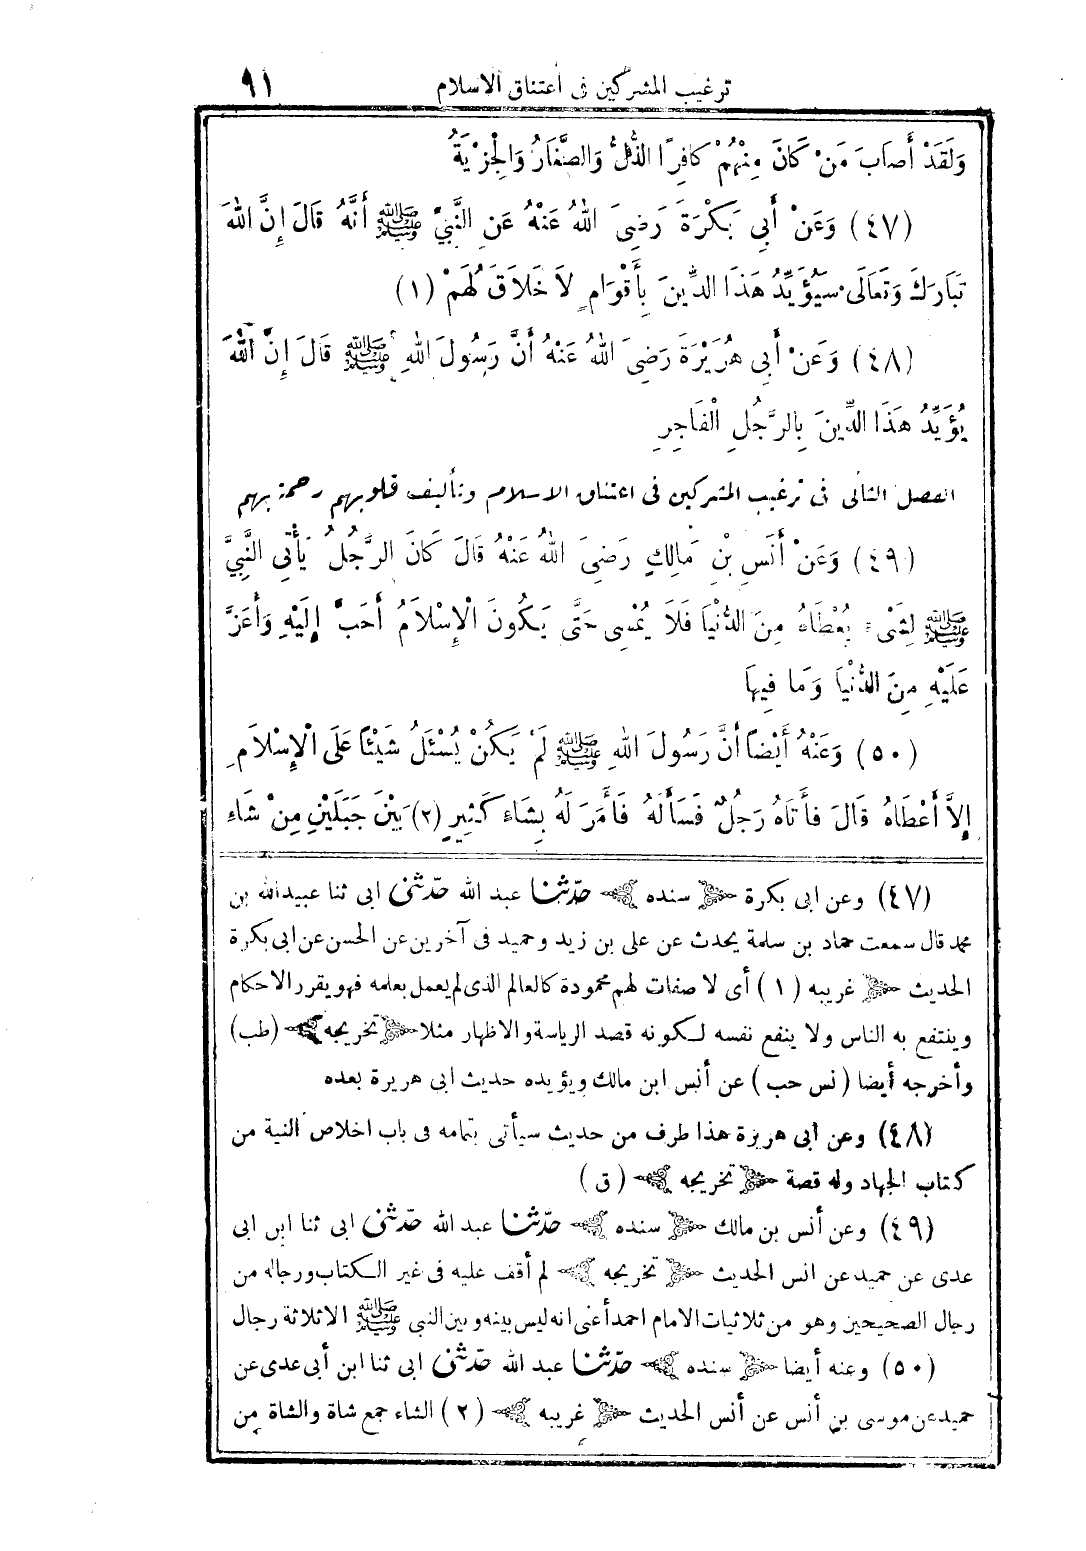 ترغيب المشركين فى أعتناق الاسلام ٩١
وَلَقَدْ أَصَابَ مَنْ كَانَ مِنْهُمْ كَافِرًا الذُّلُّ وَالصَّغَارُ وَالْجِزْيَةُ
(٤٧) وَعَنْ أَبِى بَكْرَةَ رَضِىَ اللهُ عَنْهُ عَنِ النَّبِىِّ ﷺ أَنَّهُ قَالَ إِنَّ اللهَ
تَبَارَكَ وَتَعَالَى سَيُؤَيِّدُ هَذَا الدِّينَ بِأَقْوَامٍ لاَ خَلاَقَ لَهُمْ (١)
(٤٨) وَعَنْ أَبِى هُرَيْرَةَ رَضِىَ اللهُ عَنْهُ أَنَّ رَسُولَ اللهِ ﷺ قَالَ إِنَّ اللهَ
يُؤَيِّدُ هَذَا الدِّينَ بِالرَّجُلِ الْفَاجِرِ
الفصل الثانى فى ترغيب المشركين فى اعتناق الاسلام وتأليف قلوبهم رحمة بهم
(٤٩) وَعَنْ أَنَسِ بْنِ مَالِكٍ رَضِىَ اللهُ عَنْهُ قَالَ كَانَ الرَّجُلُ يَأْتِى النَّبِىَّ
ﷺ لِشَىْءٍ يُعْطَاهُ مِنَ الدُّنْيَا فَلَا يُمْسِى حَتَّى يَكُونَ الْإِسْلَامُ أَحَبَّ إِلَيْهِ وَأَعَزَّ
عَلَيْهِ مِنَ الدُّنْيَا وَمَا فِيهَا
(٥٠) وَعَنْهُ أَيْضًا أَنَّ رَسُولَ اللهِ ﷺ لَمْ يَكُنْ يُسْئَلُ شَيْئًا عَلَى الْإِسْلَامِ
إِلاَّ أَعْطَاهُ قَالَ فَأَتَاهُ رَجُلٌ فَسَأَلَهُ فَأَمَرَ لَهُ بِشَاءٍ كَثِيرٍ (٢) بَيْنَ جَبَلَيْنِ مِنْ شَاءِ
(٤٧) وعن ابى بكرة سنده حدّثنا عبد الله حدّثنى ابى ثنا عبيدالله بن
محمد قال سمعت حماد بن سلمة يحدث عن على بن زيد وحميد فى آخرين عن الحسن عن ابى بكرة
الحديث غريبه (١) أى لا صفات لهم محمودة كالعالم الذى لم يعمل بعلمه فهو يقرر الاحكام
وينتفع به الناس ولا ينفع نفسه لكونه قصد الرياسة والاظهار مثلا تخريجه (طب)
وأخرجه أيضا (نس حب) عن أنس ابن مالك ويؤيده حديث ابى هريرة بعده
(٤٨) وعن ابى هريرة هذا طرف من حديث سيأتى بتمامه فى باب اخلاص النية من
كتاب الجهاد وله قصة تخريجه (ق)
(٤٩) وعن أنس بن مالك سنده حدّثنا عبد الله حدّثنى ابى ثنا ابن ابى
عدى عن حميد عن انس الحديث تخريجه لم أقف عليه فى غير الكتاب ورجاله من
رجال الصحيحين وهو من ثلاثيات الامام احمد أعنى انه ليس بينه وبين النبى ﷺ الا ثلاثة رجال
(٥٠) وعنه أيضا سنده حدّثنا عبد الله حدّثنى ابى ثنا ابن أبى عدى عن
حميد عن موسى بن أنس عن أنس الحديث غريبه (٢) الشاء جمع شاة والشاة من